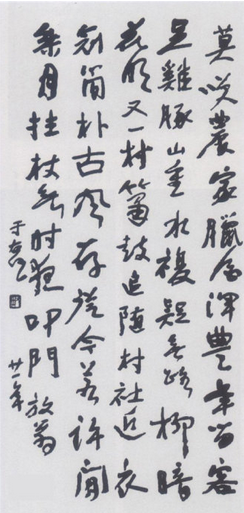 莫咲農家臘酒渾豐年留客
足雞豚山重水複疑無路柳暗
花明又一村簫鼓追隨村社近衣
冠簡朴古風存從今若許閒
乘月拄杖無時夜叩門 放翁
廿一年
于右任